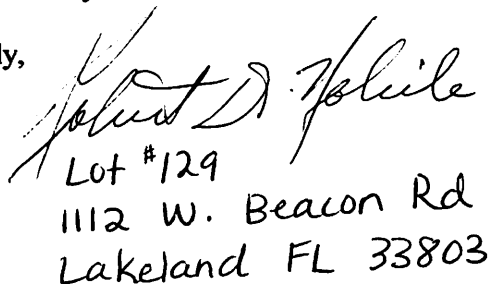 ly,
Robert D. Nobile
Lot #129
1112 W. Beacon Rd
Lakeland FL 33803